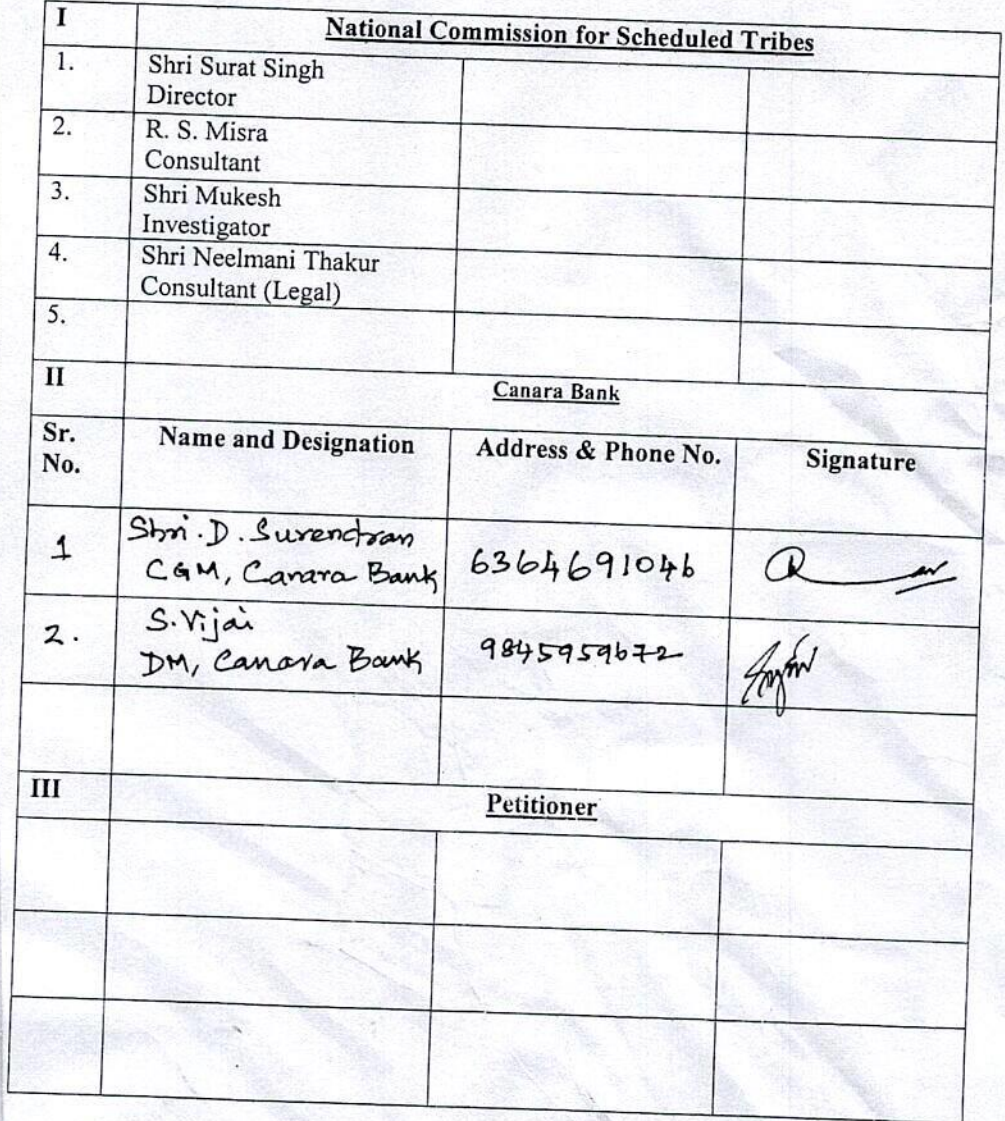 I National Commission for Scheduled Tribes
1. Shri Surat Singh
Director
2. R. S. Misra
Consultant
3. Shri Mukesh
Investigator
4. Shri Neelmani Thakur
Consultant (Legal)
5.
II Canara Bank
Sr. No. Name and Designation Address & Phone No. Signature
1 Shri. D. Surendran
CGM, Canara Bank 6364691046
2. S. Vijai
DM, Canara Bank 9845959672
III Petitioner